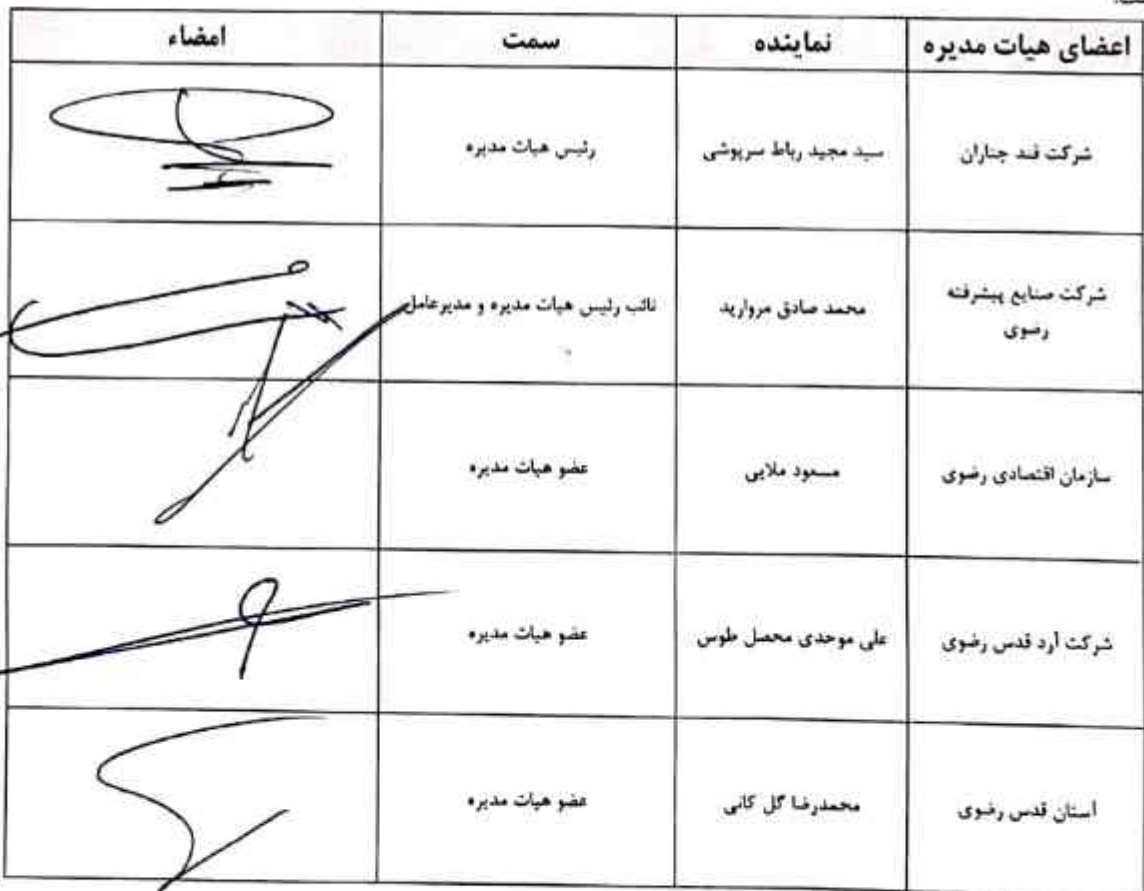 اعضای هیات مدیره نماینده سمت امضاء
شرکت قند چناران سید مجید رباط سرپوشی رئیس هیات مدیره
شرکت صنایع پیشرفته رضوی محمد صادق مروارید نائب رئیس هیات مدیره و مدیرعامل
سازمان اقتصادی رضوی مسعود ملایی عضو هیات مدیره
شرکت آرد قدس رضوی علی موحدی محصل طوس عضو هیات مدیره
آستان قدس رضوی محمدرضا گل کانی عضو هیات مدیره